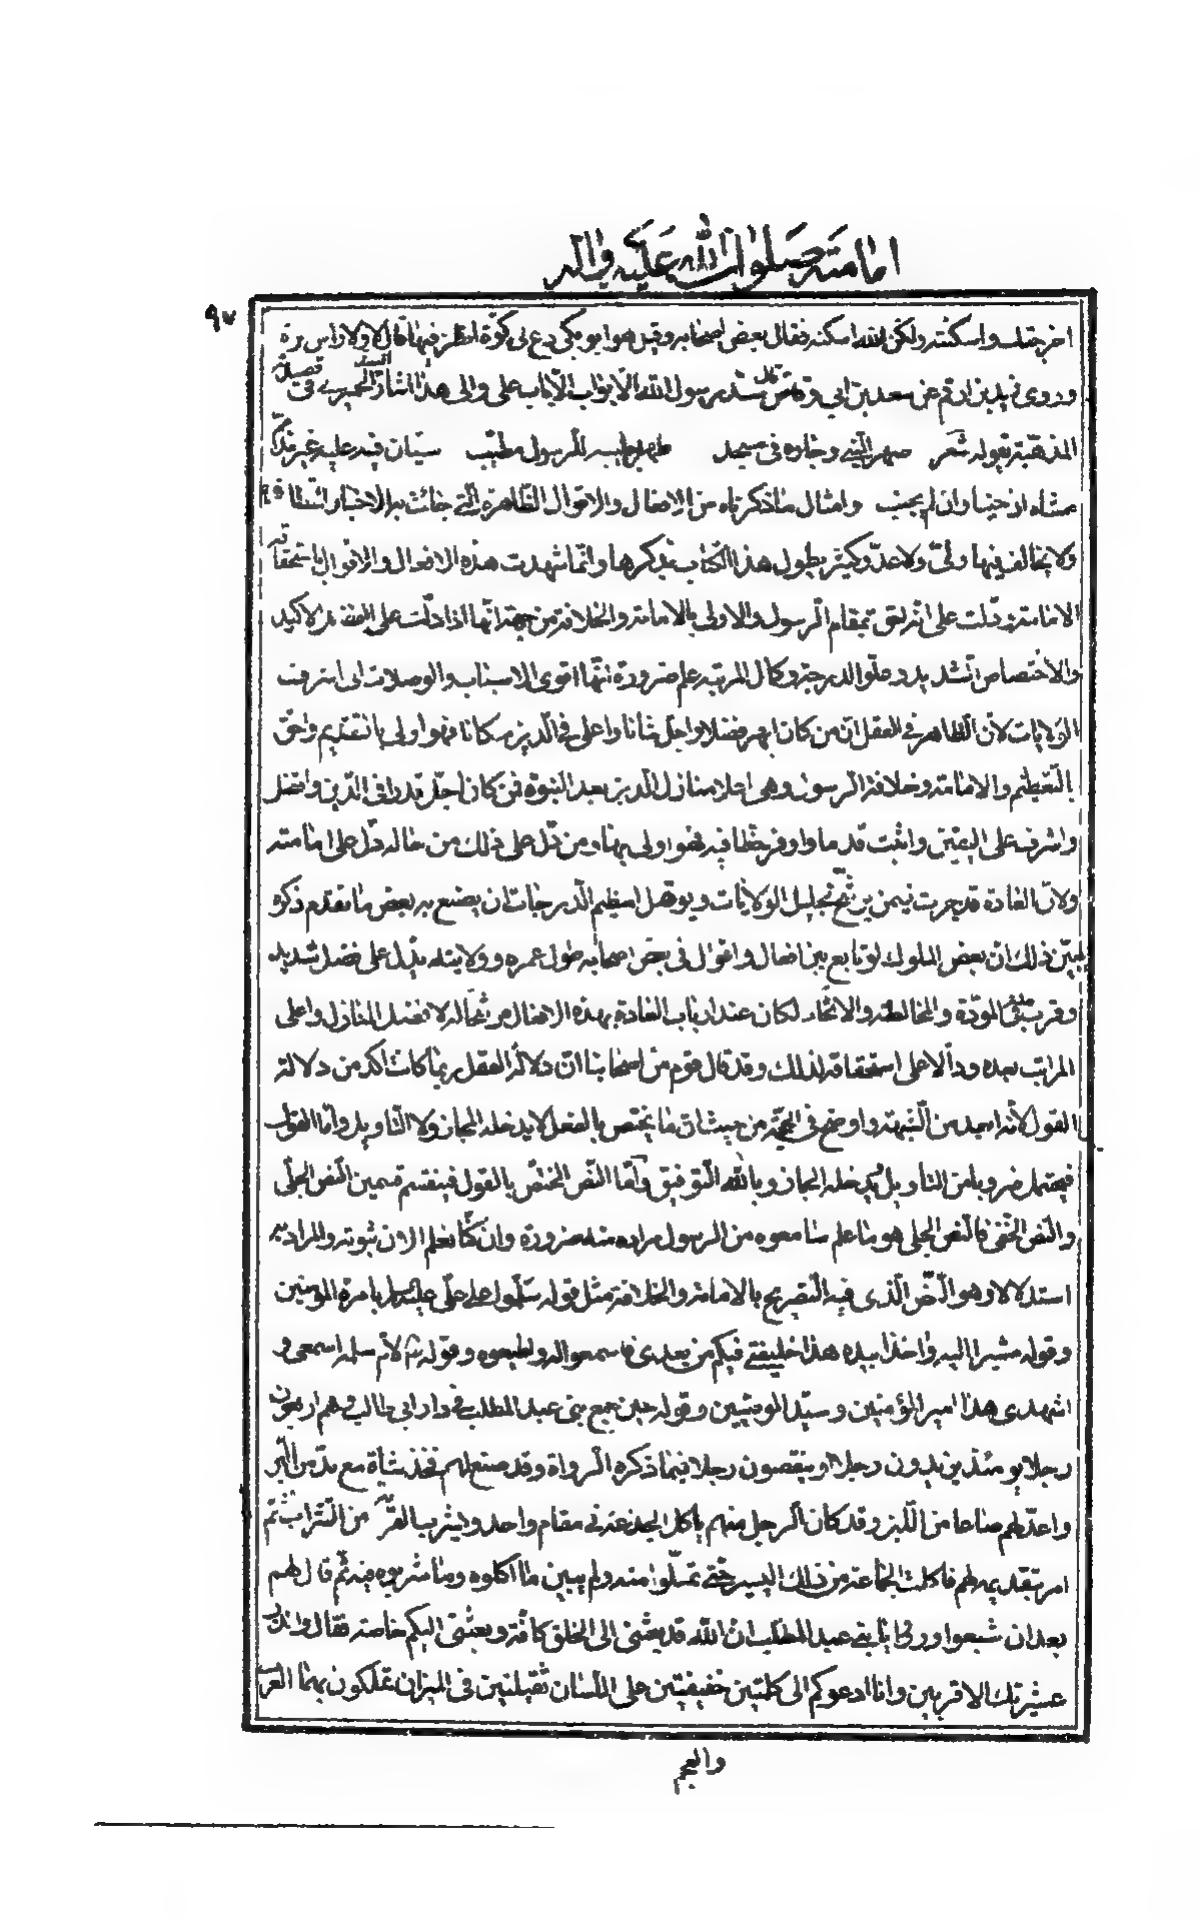 امامته صلوات الله عليه واله
٩٧
اخرجتك واسكنته ولكن الله اسكنه فقال بعض اصحابه وقيل هو ابو بكر دع لي كوة انظر فيها قال لا ولا راس برة
وروى زيد بن ارقم عن سعد بن ابي وقاص قال سد رسول الله الابواب الا باب علي والى هذا اشار السيد الحميري في قصيدته
المذهبة بقوله شعر صهر النبي وجاره في مسجد طهر بطيبه للرسول مطيب سيان فيه عليه غير مذمم
ممشاه ان جنبا وان لم يجنب وامثال ما ذكرناه من الافعال والاقوال الظاهرة التي جائت به الاخبار
ولا يخالف فيها ولي ولا عدو كثير يطول هذا الكتاب بذكرها وانما شهدت هذه الافعال والاقوال باستحقاقه
الامامة ودلت على انه احق بمقام الرسول والاولى بالامامة والخلافة من جهة انها اذا دلت على الفضل الاكيد
والاختصاص الشديد وعلو الدرجة وكمال المرتبة علم ضرورة انها اقوى الاسباب والوصلات الى اشرف
الولايات لان الظاهر في العقل ان من كان ابهر فضلا واجل شانا واعلى في الدين مكانا فهو اولى بالتقديم واحق
بالتعظيم والامامة وخلافة الرسول وهي اعلا منازل الدين بعد النبوة فمن كان اجل قدرا في الدين وافضل
واشرف على اليقين واثبت قدما واوفر حظا فيه فهو اولى بها ومن دل على ذلك من حاله دل على امامته
ولان العادة قد جرت فيمن يرشح لجليل الولايات ويوهل لعظيم الدرجات ان يصنع به بعض ما تقدم ذكره
يبين ذلك ان بعض الملوك لو تابع بين افعال واقوال في بعض اصحابه طول عمره وولايته يدل على فضل شديد
وقرب منه في المودة والمخالطة والاتحاد لكان عند ارباب العادة بهذه الافعال مرشحا له لافضل المنازل واعلى
المراتب بعده ودالا على استحقاقه لذلك وقد قال قوم من اصحابنا ان دلالة العقل ربما كانت اكد من دلالة
القول لانها ابعد من الشبهة واوضح في الحجة من حيث ان ما يختص بالفعل لا يدخله المجاز ولا التاويل واما القول
فيحتمل ضروبا من التاويل ويدخله المجاز وبالله التوفيق واما النص المختص بالقول فينقسم قسمين النص الجلي
والنص الخفي فالنص الجلي هو ما علم سامعوه من الرسول مراده منه ضرورة وان كنا نعلم الان ثبوته والمراد به
استدلالا وهو النص الذي فيه التصريح بالامامة والخلافة مثل قوله سلموا على علي بامرة المؤمنين
وقوله مشيرا اليه واخذا بيده هذا خليفتي فيكم من بعدي فاسمعوا له واطيعوه وقوله لام سلمه اسمعي و
اشهدي هذا امير المؤمنين وسيد الوصيين وقوله حين جمع بني عبد المطلب في دار ابي طالب وهم اربعون
رجلا يومئذ يزيدون رجلا او ينقصون رجلا فيما ذكره الرواة وقد صنع لهم فخذ شاة مع مد من البر
واعد لهم صاعا من اللبن وقد كان الرجل منهم ياكل الجذعة في مقام واحد ويشرب الفرق من الشراب ثم
امر بتقديمه لهم فاكلت الجماعة من ذلك اليسير حتى تملوا منه ولم يبين ما اكلوه وما شربوه فيه ثم قال لهم
بعد ان شبعوا ورووا يا بني عبد المطلب ان الله قد بعثني الى الخلق كافة وبعثني اليكم خاصة فقال وانذر
عشيرتك الاقربين وانا ادعوكم الى كلمتين خفيفتين على اللسان ثقيلتين في الميزان تملكون بهما العرب
والعجم